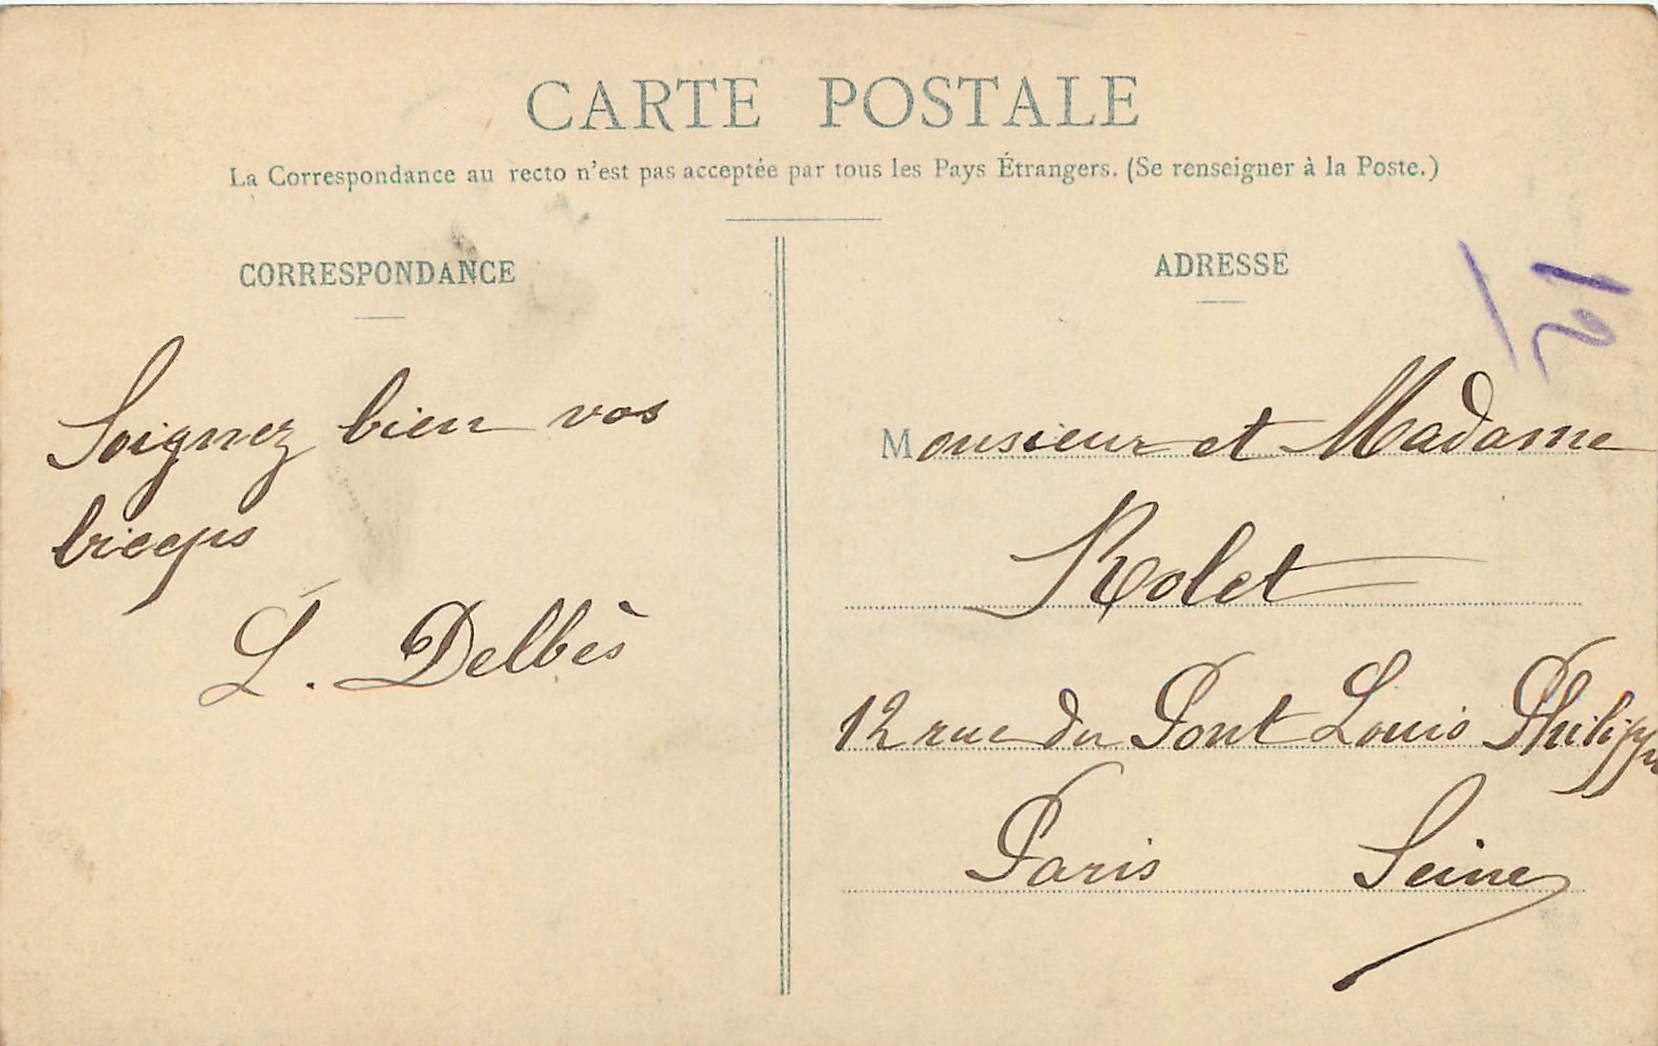 CARTE POSTALE
La Correspondance au recto n'est pas acceptée par tous les Pays Étrangers. (Se renseigner à la Poste.)
CORRESPONDANCE
Soignez bien vos
biceps
L. Delbès
ADRESSE
Monsieur et Madame
Rolet
12 rue du Pont Louis Philippe
Paris Seine